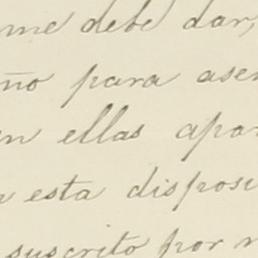 me debe dar,
ño para asen
en ellas apar
a esta disposi
suscrito por n